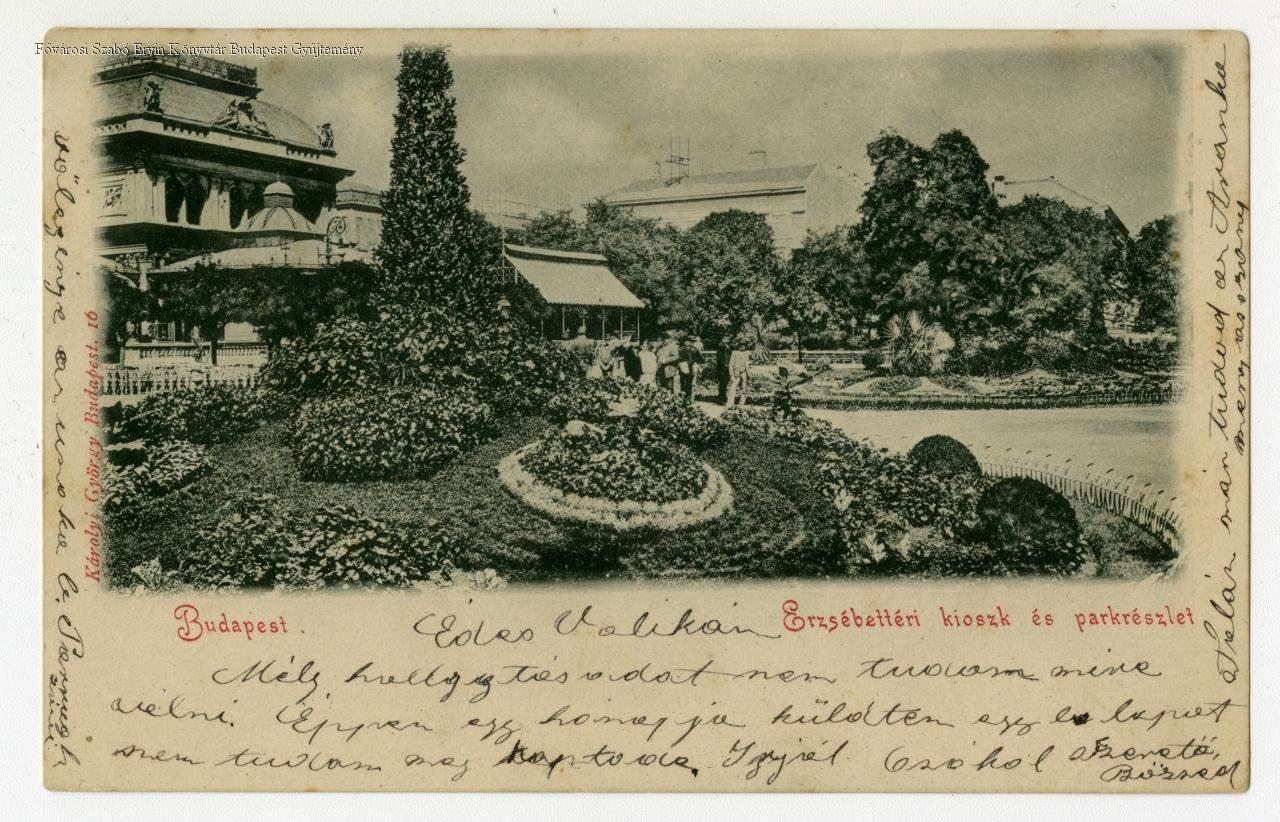 Fővárosi Szabó Ervin Könyvtár Budapest Gyűjtemény
Károlyi György Budapest. 16
Budapest.
Erzsébettéri kioszk és parkrészlet
Édes Valikám
Mély hallgatásodat nem tudom mire
vélni. Éppen egy hónapja küldtem egy le lapot
nem tudom meg kaptode. Irjál. Csókol Szerető,
Bözséd
Talán már tudod az Aranka
menyasszony
völegénye az unoka